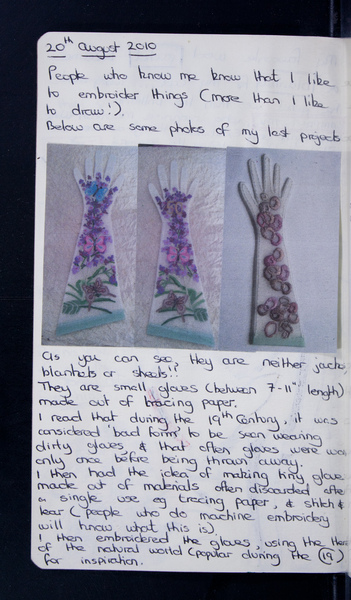 20th August 2010
People who know me know that I like
to embroider things (more than I like
to draw!).
Below are some photos of my last projects
As you can see, they are neither jackets
blankets or sheets!!
They are small gloves (between 7-11" length)
made out of tracing paper.
I read that during the 19th Century, it was
considered 'bad form' to be seen wearing
dirty gloves & that often gloves were worn
only once before being thrown away.
I then had the idea of making tiny gloves
made out of materials often discarded after
a single use eg tracing paper, & stitch &
tear (people who do machine embroidery
will know what this is)
I then embroidered the gloves, using the
of the natural world (popular during the (19)
for inspiration.